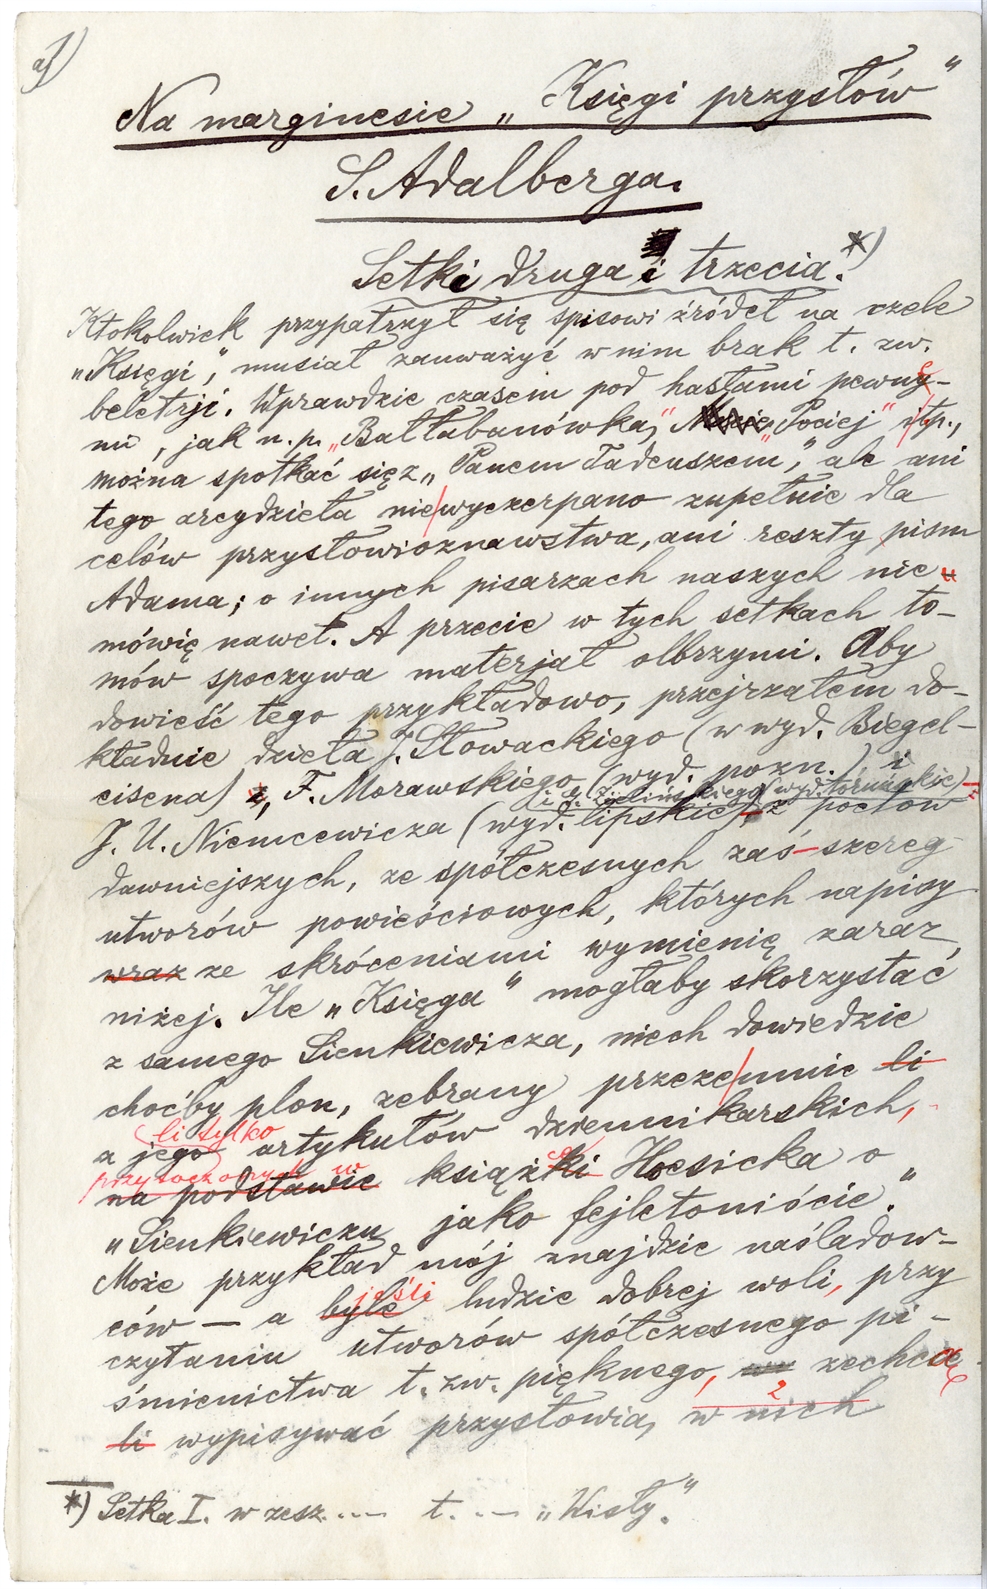 a)
Na marginesie „Księgi przysłów"
S. Adalberga.
Setki druga i trzecia.*)
Ktokolwiek przypatrzył się spisowi źródeł na czele
„Księgi", musiał zauważyć w nim brak t. zw.
beletrji. Wprawdzie czasem pod hasłami pewny-
mi, jak n. p. „Bałłabanówka," „Pociej" itp.,
można spotkać się z „Panem Tadeuszem", ale ani
tego arcydzieła nie wyczerpano zupełnie dla
celów przysłowioznawstwa, ani reszty pism
Adama; o innych pisarzach naszych nie
mówię nawet. A przecie w tych setkach to-
mów spoczywa materjał olbrzymi. Aby
dowieść tego przykładowo, przejrzałem do-
kładnie dzieła J. Słowackiego (w wyd. Biegel-
eisena) i, F. Morawskiego (wyd. pozn.) i
i G. Zielińskiego (wyd. toruńskie)
J. U. Niemcewicza (wyd. lipskie), z poetów
dawniejszych, ze spółczesnych zaś szereg
utworów powieściowych, których napisy
wraz ze skróceniami wymienię zaraz
niżej. Ile „Księga" mogłaby skorzystać
z samego Sienkiewicza, niech dowiedzie
choćby plon, zebrany przezemnie li
li tylko
z jego artykułów dziennikarskich,
przytoczonych w
na podstawie książki Hoesicka o
„Sienkiewiczu jako fejletoniście."
Może przykład mój znajdzie naśladow-
jeśli
ców — a byle ludzie dobrej woli, przy
czytaniu utworów spółczesnego pi-
śmiennictwa t. zw. pięknego, zechcą
li wypisywać przysłowia, w nich
2
*) Setka I. w zesz. .— t. .— „Wisły."